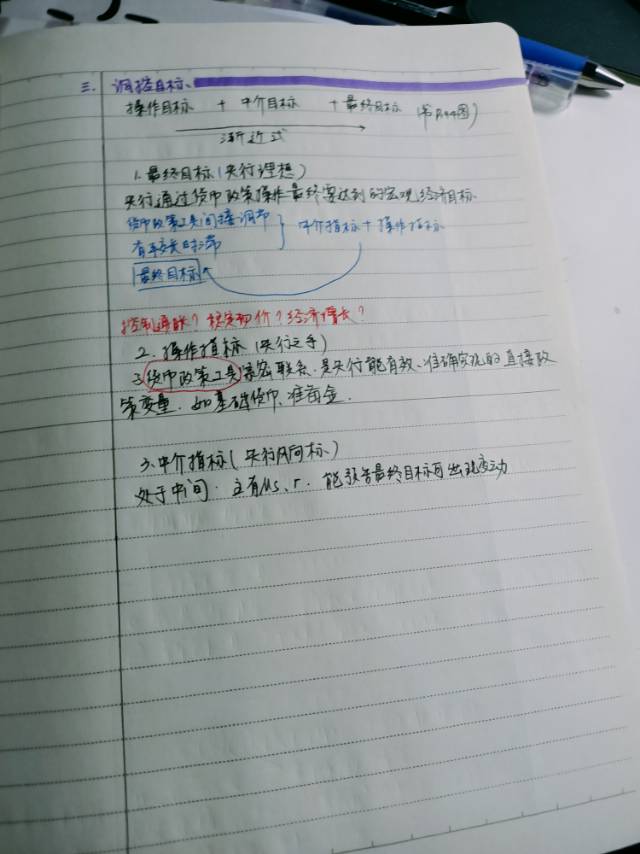 三. 调控目标、
操作目标 + 中介目标 + 最终目标 (书P144图)
渐近式
1. 最终目标(央行理想)
央行通过货币政策操作最终要达到的宏观经济目标
货币政策工具间接调节
有较长时滞
中介指标+操作指标
最终目标
控制通胀?稳定物价?经济增长?
2. 操作指标(央行之手)
与货币政策工具紧密联系.是央行能有效、准确实现的直接政
策变量. 如基础货币、准备金.
3. 中介指标(央行风向标)
处于中间. 主有Ms、r. 能预告最终目标可出现变动